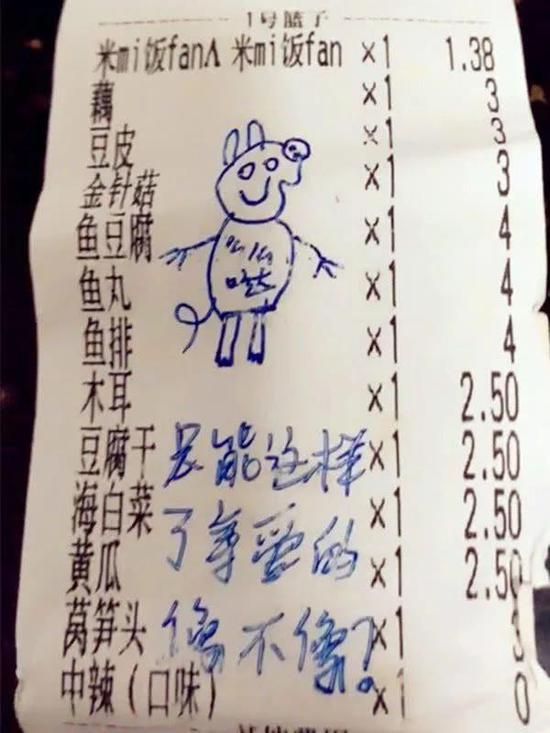 1号篮子
米mi饭fanA 米mi饭fan x1 1.38
藕 x1 3
豆皮 x1 3
金针菇 x1 3
鱼豆腐 x1 4
鱼丸 x1 4
鱼排 x1 4
木耳 x1 2.50
豆腐干 x1 2.50
海白菜 x1 2.50
黄瓜 x1 2.50
莴笋头 x1 3
中辣（口味） x1 0
么么
哒
只能这样
了亲爱的
像不像？